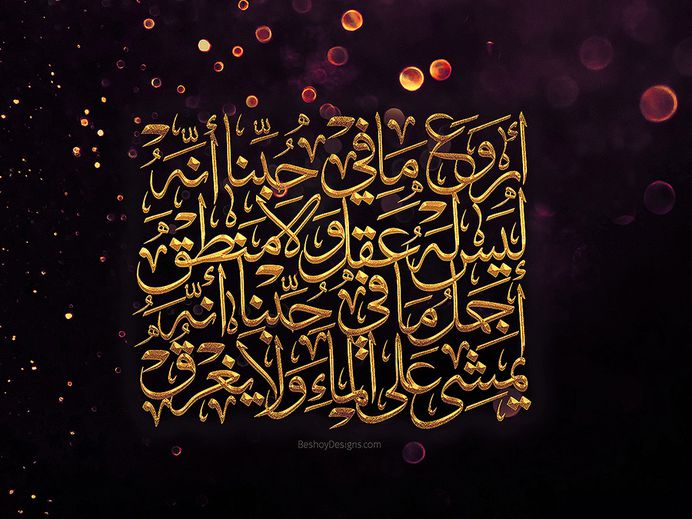 أروع ما في حُبِّنا أنَّهُ
ليس له عقل ولا منطقُ
أجمل ما في حُبِّنا أنَّهُ
يمشي على الماءِ ولا يغرقُ
BeshoyDesigns.com